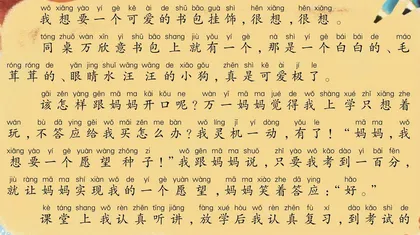 wǒ xiǎng yào yí gè kě ài de shū bāo guà shì hěn xiǎng hěn xiǎng
我想要一个可爱的书包挂饰,很想,很想。
tóng zhuō wàn xīn yì shū bāo shang jiù yǒu yí gè nà shì yí gè bái bái de máo
同桌万欣意书包上就有一个,那是一个白白的、毛
róng róng de yǎn jing shuǐ wāng wāng de xiǎo gǒu zhēn shì kě ài jí le
茸茸的、眼睛水汪汪的小狗,真是可爱极了。
gāi zěn yàng gēn mā ma kāi kǒu ne wàn yī mā ma jué de wǒ shàng xué zhǐ xiǎng zhe
该怎样跟妈妈开口呢?万一妈妈觉得我上学只想着
wán bù dā yìng gěi wǒ mǎi zěn me bàn wǒ líng jī yí dòng yǒu le mā ma wǒ
玩,不答应给我买怎么办?我灵机一动,有了!“妈妈,我
xiǎng yào yí gè yuàn wàng zhǒng zi wǒ gēn mā ma shuō zhǐ yào wǒ kǎo dào yì bǎi fēn
想要一个愿望种子!”我跟妈妈说,只要我考到一百分,
jiù ràng mā ma shí xiàn wǒ de yí gè yuàn wàng mā ma xiào zhe dā ying hǎo
就让妈妈实现我的一个愿望,妈妈笑着答应:“好。”
kè táng shang wǒ rèn zhēn tīng jiǎng fàng xué hòu wǒ rèn zhēn fù xí dào kǎo shì de
课堂上我认真听讲,放学后我认真复习,到考试的